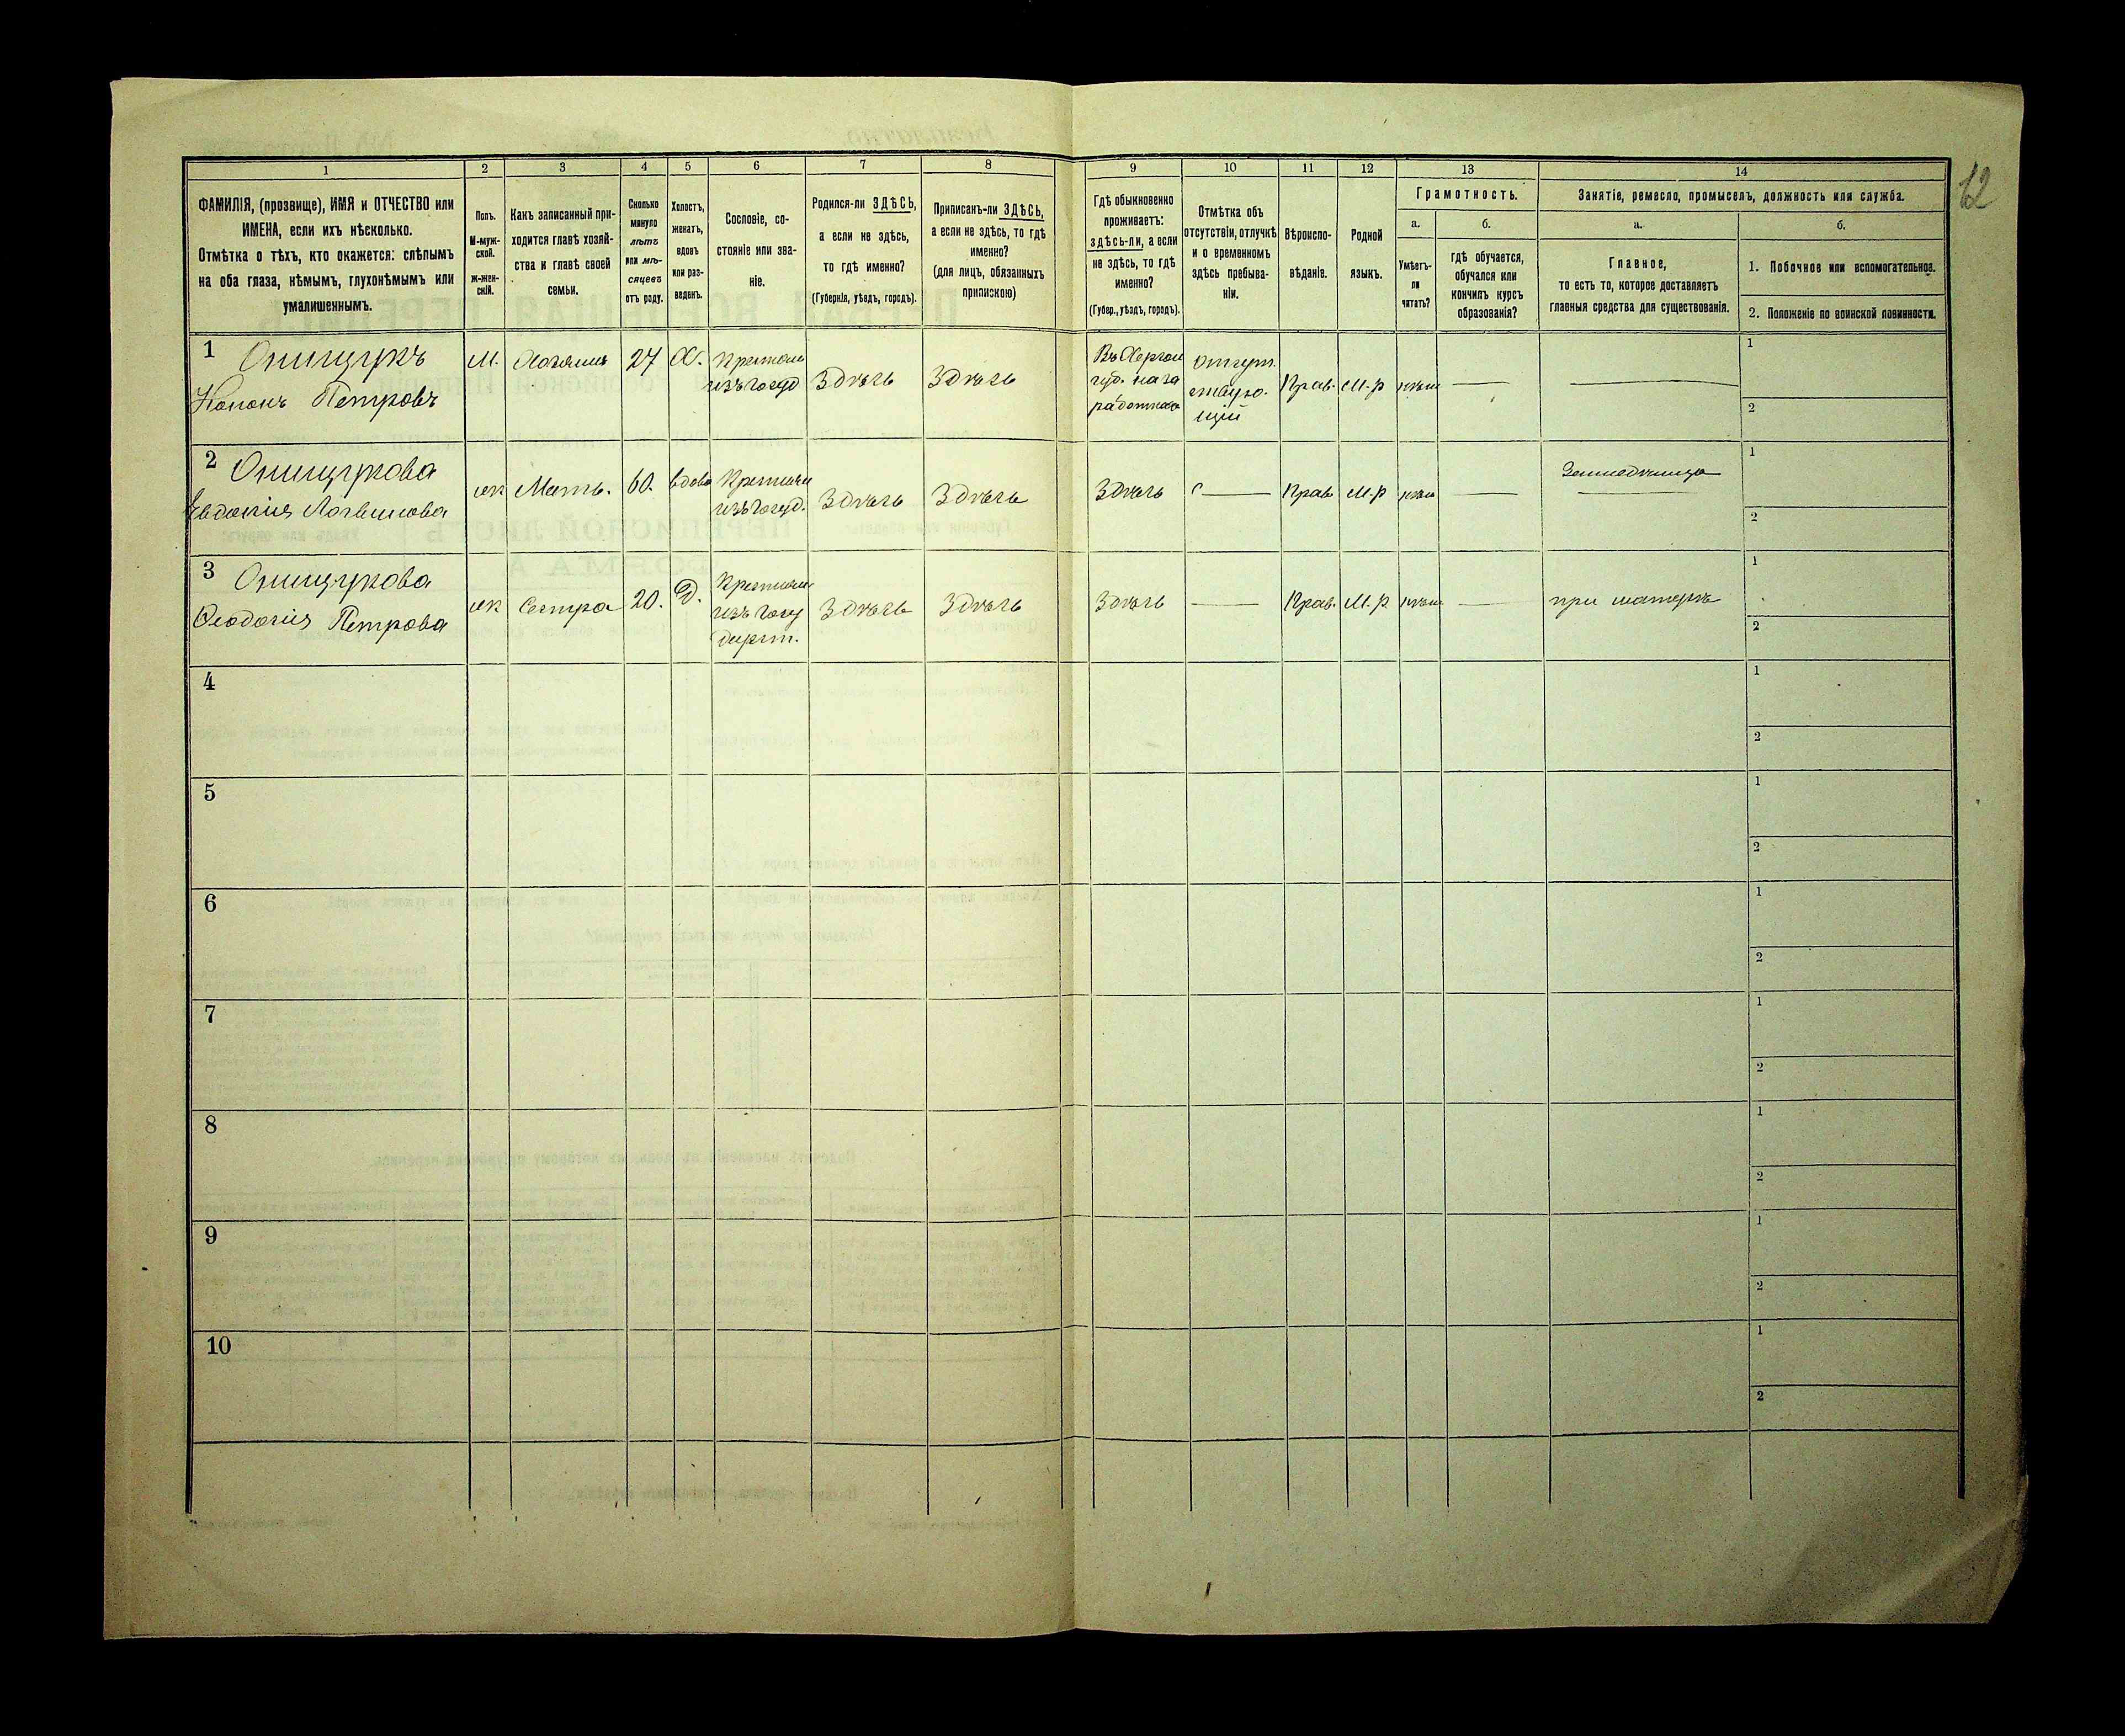 12
1
ФАМИЛІЯ, (прозвище), ИМЯ и ОТЧЕСТВО или
ИМЕНА, если ихъ нѣсколько.
Отмѣтка о тѣхъ, кто окажется: слѣпымъ
на оба глаза, нѣмымъ, глухонѣмымъ или
умалишеннымъ.
2
Полъ.
М-муж-
ской.
ж-жен-
скій.
3
Какъ записанный при-
ходится главѣ хозяй-
ства и главѣ своей
семьи.
4
Сколько
минуло
лѣтъ
или мѣ-
сяцевъ
отъ роду.
5
Холостъ,
женатъ,
вдовъ
или раз-
веденъ.
6
Сословіе, со-
стояніе или зва-
ніе.
7
Родился-ли ЗДѢСЬ,
а если не здѣсь,
то гдѣ именно?
(Губернія, уѣздъ, городъ).
8
Приписанъ-ли ЗДѢСЬ,
а если не здѣсь, то гдѣ
именно?
(для лицъ, обязанныхъ
припискою)
9
Гдѣ обыкновенно
проживаетъ:
здѣсь-ли, а если
не здѣсь, то гдѣ
именно?
(Губер., уѣздъ, городъ).
10
Отмѣтка объ
отсутствіи, отлучкѣ
и о временномъ
здѣсь пребыва-
ніи.
11
Вѣроиспо-
вѣданіе.
12
Родной
языкъ.
13
Грамотность.
а.
Умѣетъ-
ли
читать?
б.
гдѣ обучается,
обучался или
кончилъ курсъ
образованія?
14
Занятіе, ремесло, промыселъ, должность или служба.
а.
Главное,
то есть то, которое доставляетъ
главныя средства для существованія.
б.
1. Побочное или вспомогательное.
2. Положеніе по воинской повинности.
1 Онищукъ
Кононъ Петровъ
М.
Хозяинъ
27
Х.
Крестьян
изъ госуд
Здѣсь
Здѣсь
Въ Херсон
губ. на за
работкахъ
отсут.
ствую-
щій
Прав.
М-р
нѣтъ
1
2
2 Онищукова
Евдокія Логвинова
жн
Мать.
60.
вдова
Крестьян
изъ госуд.
Здѣсь
Здѣсь
Здѣсь
Прав
М-р
нѣтъ
Земледѣлица
1
2
3 Онищукова
Ѳеодосія Петрова
жн
Сестра
20.
Д.
Крестьян
изъ госу
дарст.
Здѣсь
Здѣсь
Здѣсь
Прав.
М-р
нѣтъ
при матери
1
2
4
1
2
5
1
2
6
1
2
7
1
2
8
1
2
9
1
2
10
1
2